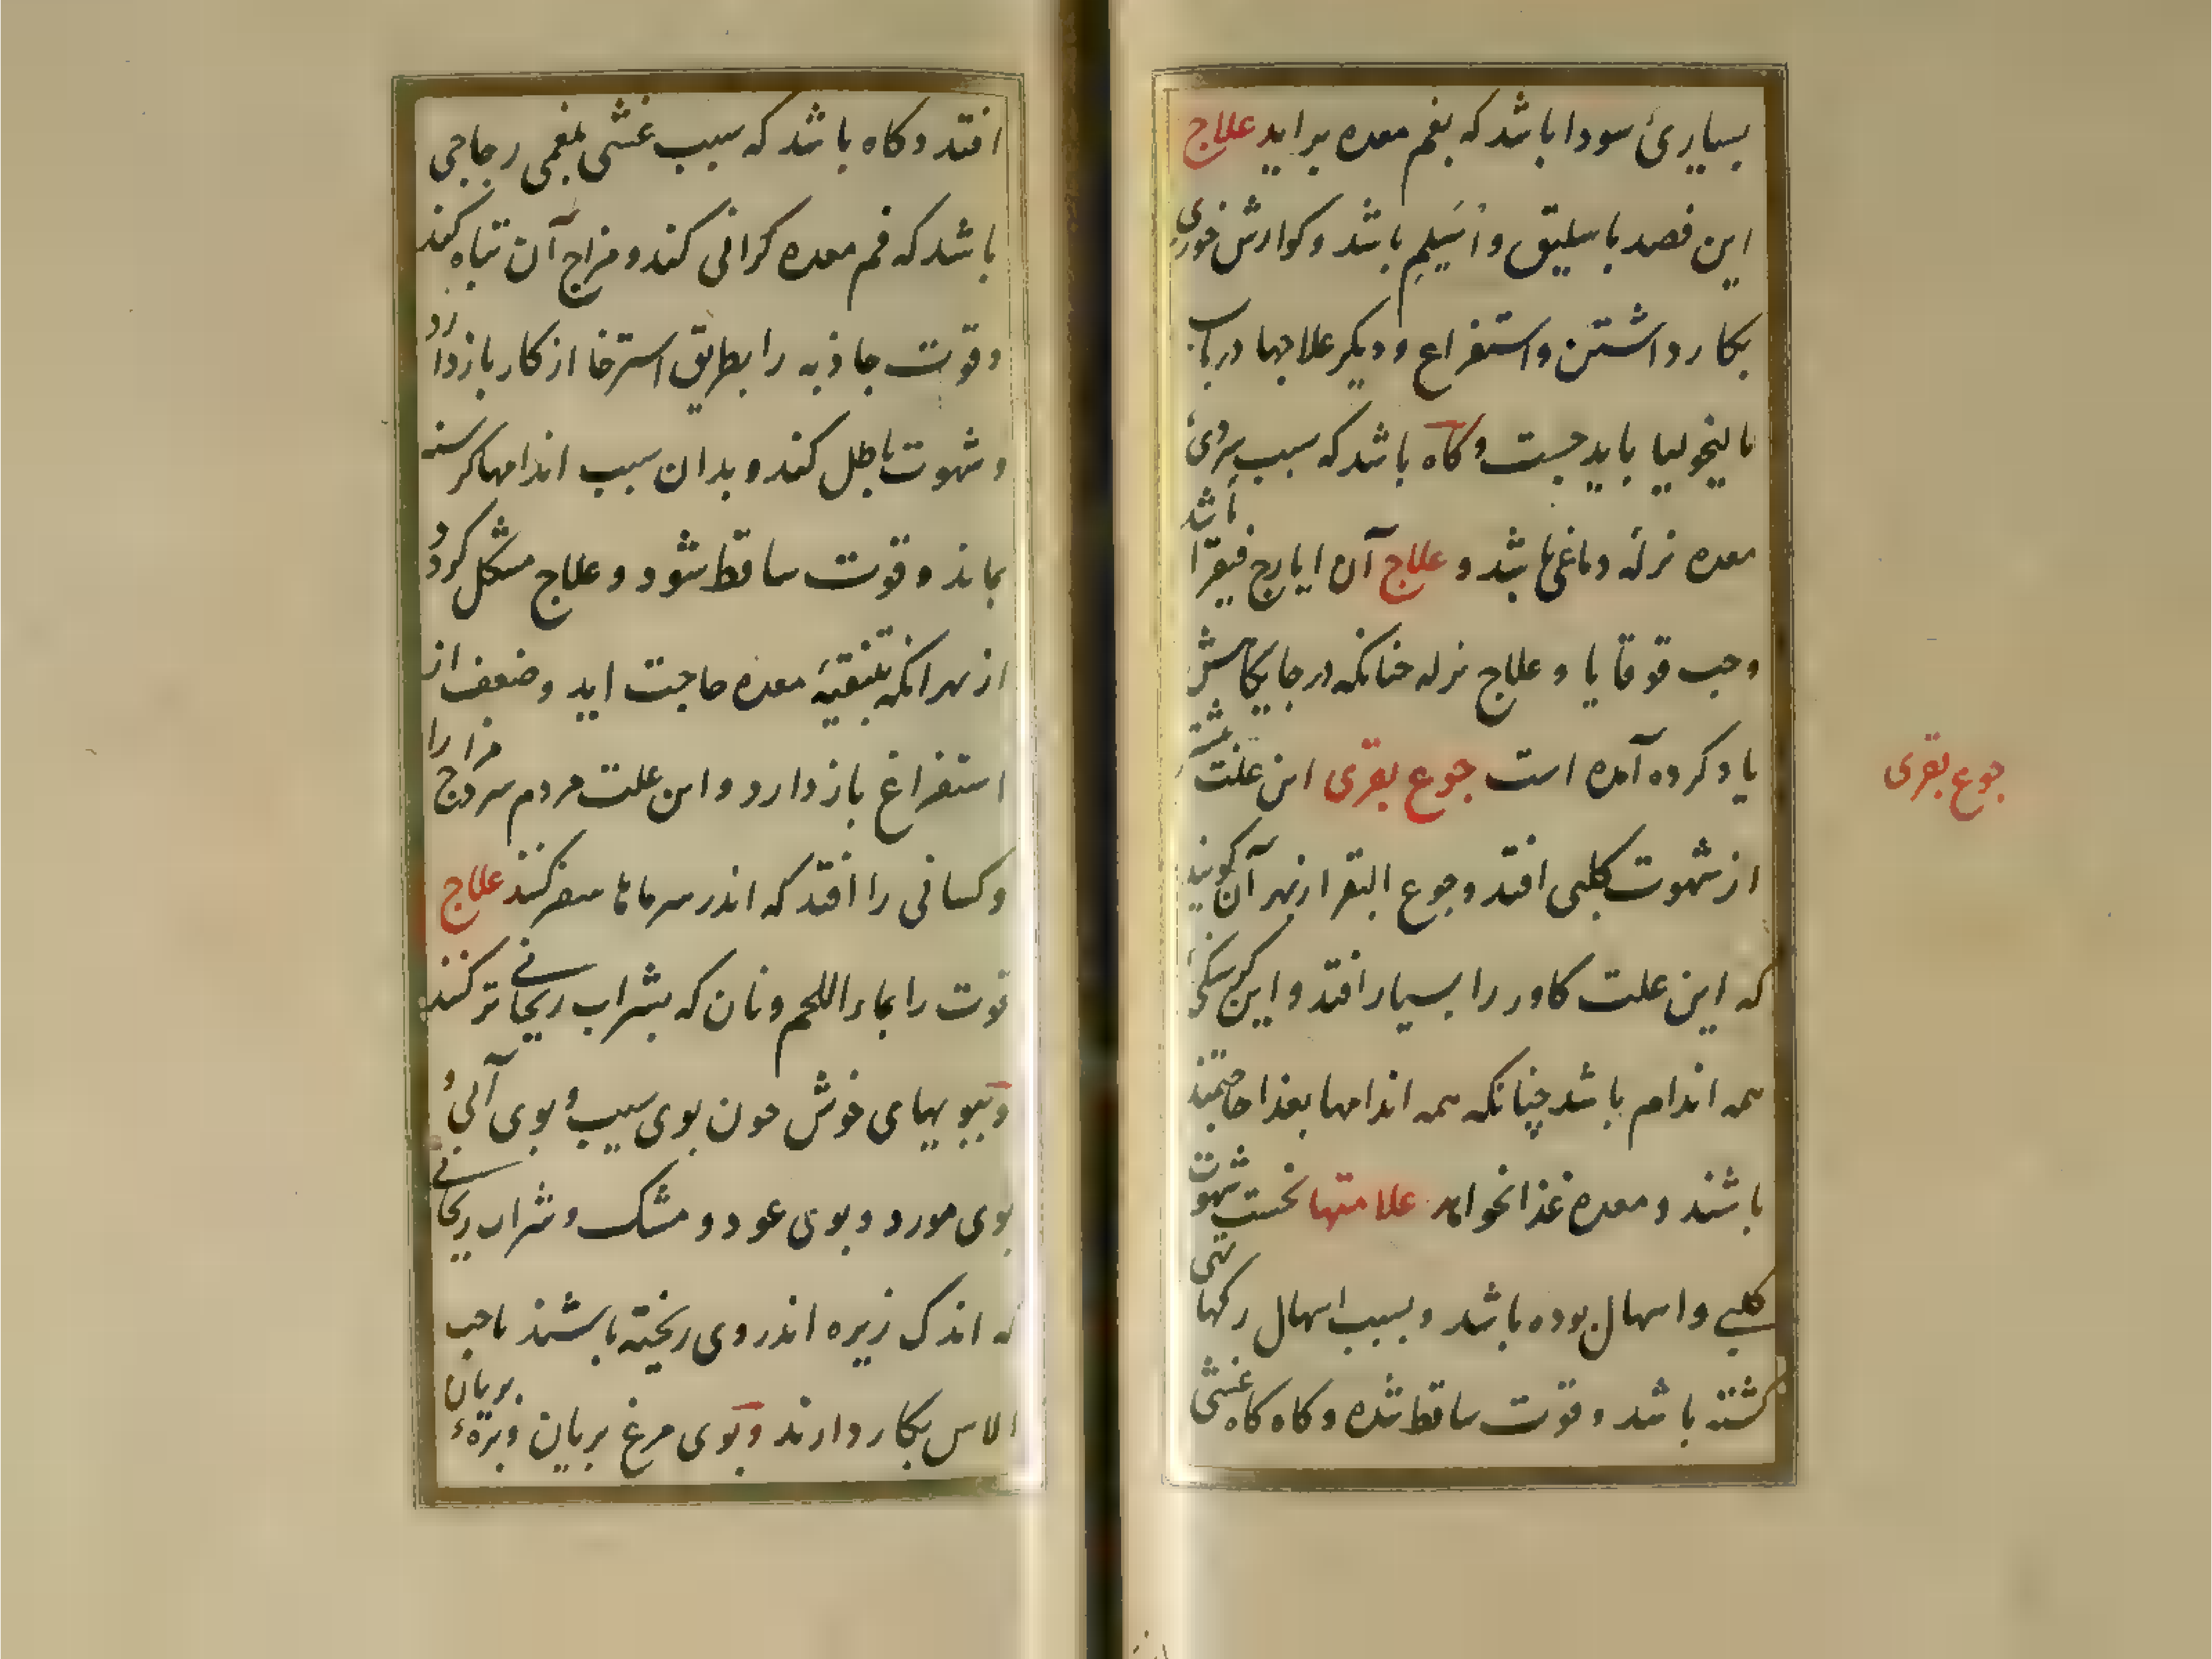 بسیاریٔ سودا باشد که بفم معده براید علاج
این فصد باسلیق و اُسَیلِم باشد و کوارش خوزی
بکار داشتن و استفراغ و دیکر علاجها در باب
مالیخولیا باید جست و کاه باشد که سبب سردیٔ
معده نزلهٔ دماغی باشد و علاج آن ایارج فیقرا باشد
وحب قوقایا و علاج نزله جنانکه در جایکاهش
یاد کرده آمده است جوع بقری این علت بیشتر
جوع بقری
از شهوت کلبی افتد و جوع البقر از بهر آن کویند
که این علت کاو را بسیار افتد و این کرسنکی
همه اندام باشد چنانکه همه اندامها بغذا حاجتمند
باشند و معده غذا نخواهد علامتها نخست شهوت
کلبی و اسهال بوده باشد و بسبب اسهال رکها تهی
کشته باشد و قوت ساقط شده و کاه کاه غشی
افتد و کاه باشد که سبب غشی بلغمی زجاجی
باشد که فم معده کرانی کند و مزاج آن تباه کند
و قوت جاذبه را بطریق استرخا از کار باز دارد
و شهوت باطل کند و بدان سبب اندامها کرسنه
بماند و قوت ساقط شود و علاج مشکل کردد
از بهر انکه بتنقیهٔ معده حاجت اید و ضعف از
استفراغ باز دارد و این علت مردم سرد مزاج را
و کسانی را افتد که اندر سرماها سفر کنند علاج
قوت را بماء اللحم و نان که بشراب ریحانی تر کنند
و ببویهای خوش جون بوی سیب و بوی آبی و
بوی مورد و بوی عود و مشک و شراب ریحانی
که اندک زیره اندر وی ریخته باشند با حب
الاس بکار دارند و بوی مرغ بریان و برهٔ بریان